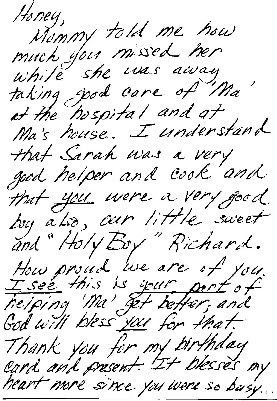 Honey,
Mommy told me how
much you missed her
while she was away
taking good care of 'Ma'
at the hospital and at
Ma's house. I understand
that Sarah was a very
good helper and cook and
that you were a very good
boy also, our little sweet
and "Holy Boy" Richard.
How proud we are of you.
I see this is your part of
helping 'Ma' get better, and
God will bless you for that.
Thank you for my birthday
card and present. It blesses my
heart more since you were so busy...